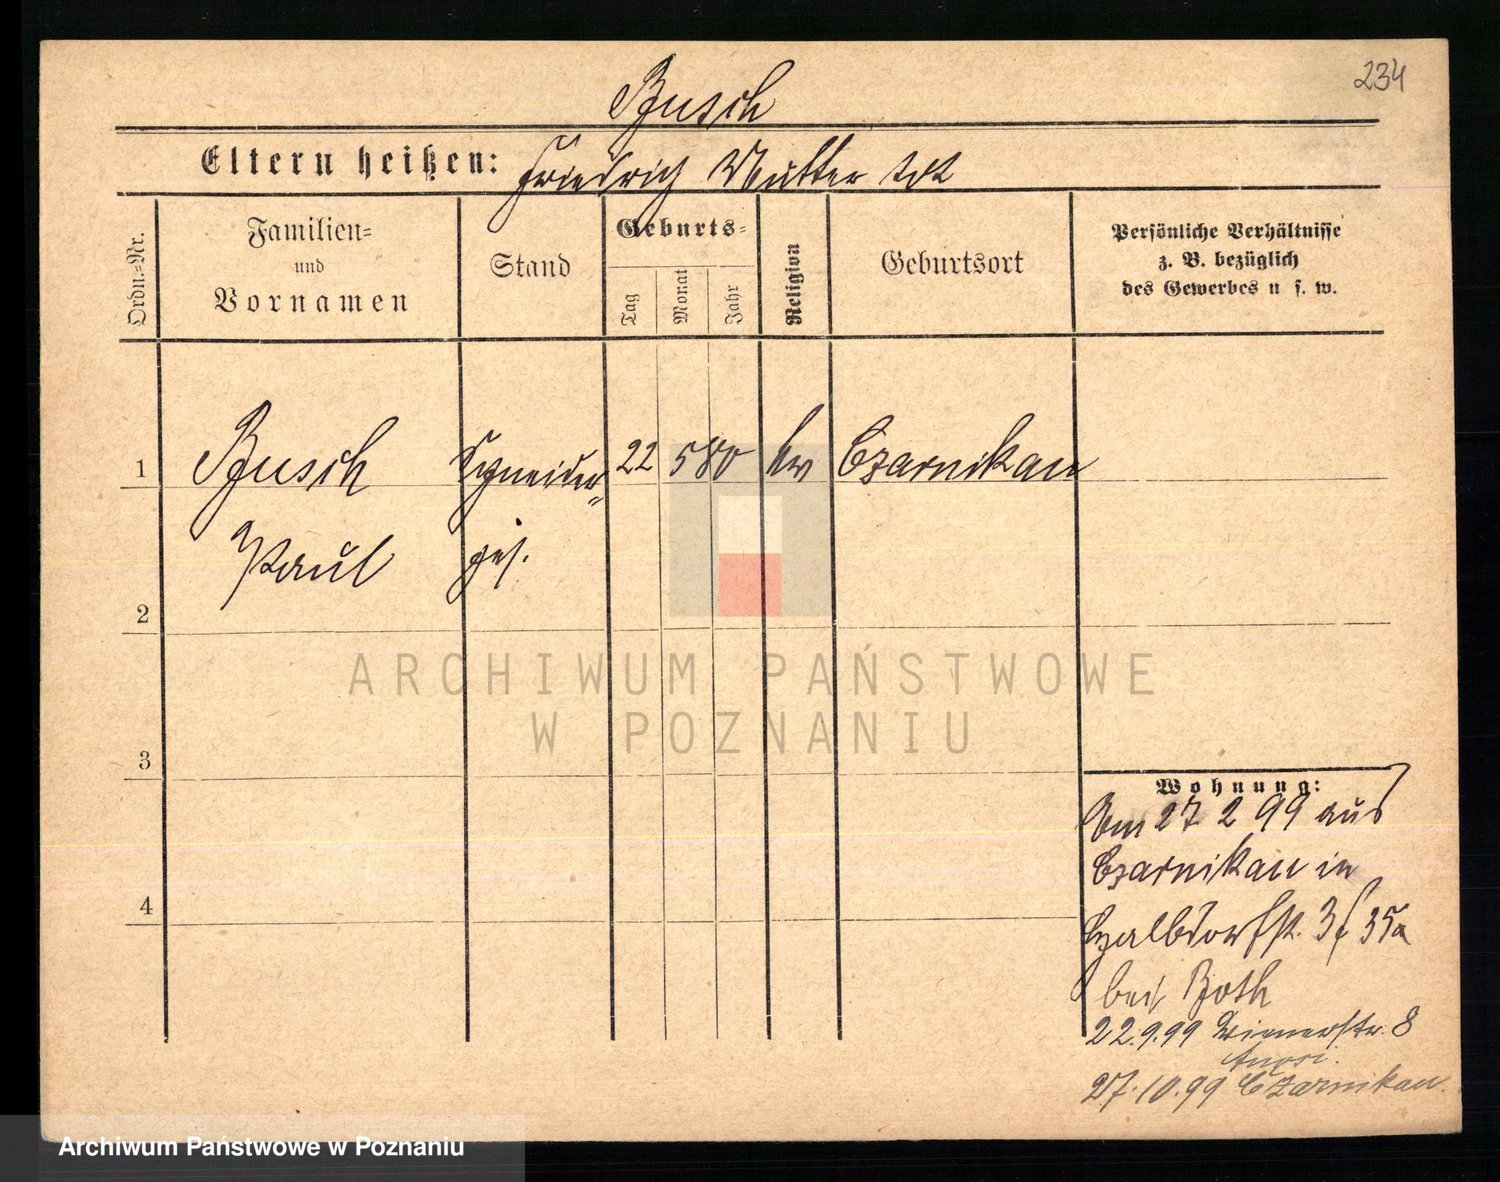 234
Busch
Eltern heißen: Friedrich Mutter tot
Ordn.-Nr.
Familien-
und
Vornamen
Stand
Geburts-
Tag
Monat
Jahr
Religion
Geburtsort
Persönliche Verhältnisse
z. B. bezüglich
des Gewerbes u s. w.
1 Busch Schneider- 22 5 80 ev Czarnikau
Paul ges.
2
3
4
Wohnung:
Am 27 2 99 aus
Czarnikau in
35a
bei Both
22.9.99 Wienerstr. 8
27.10.99 Czarnikau.
ARCHIWUM PAŃSTWOWE
W POZNANIU
Archiwum Państwowe w Poznaniu